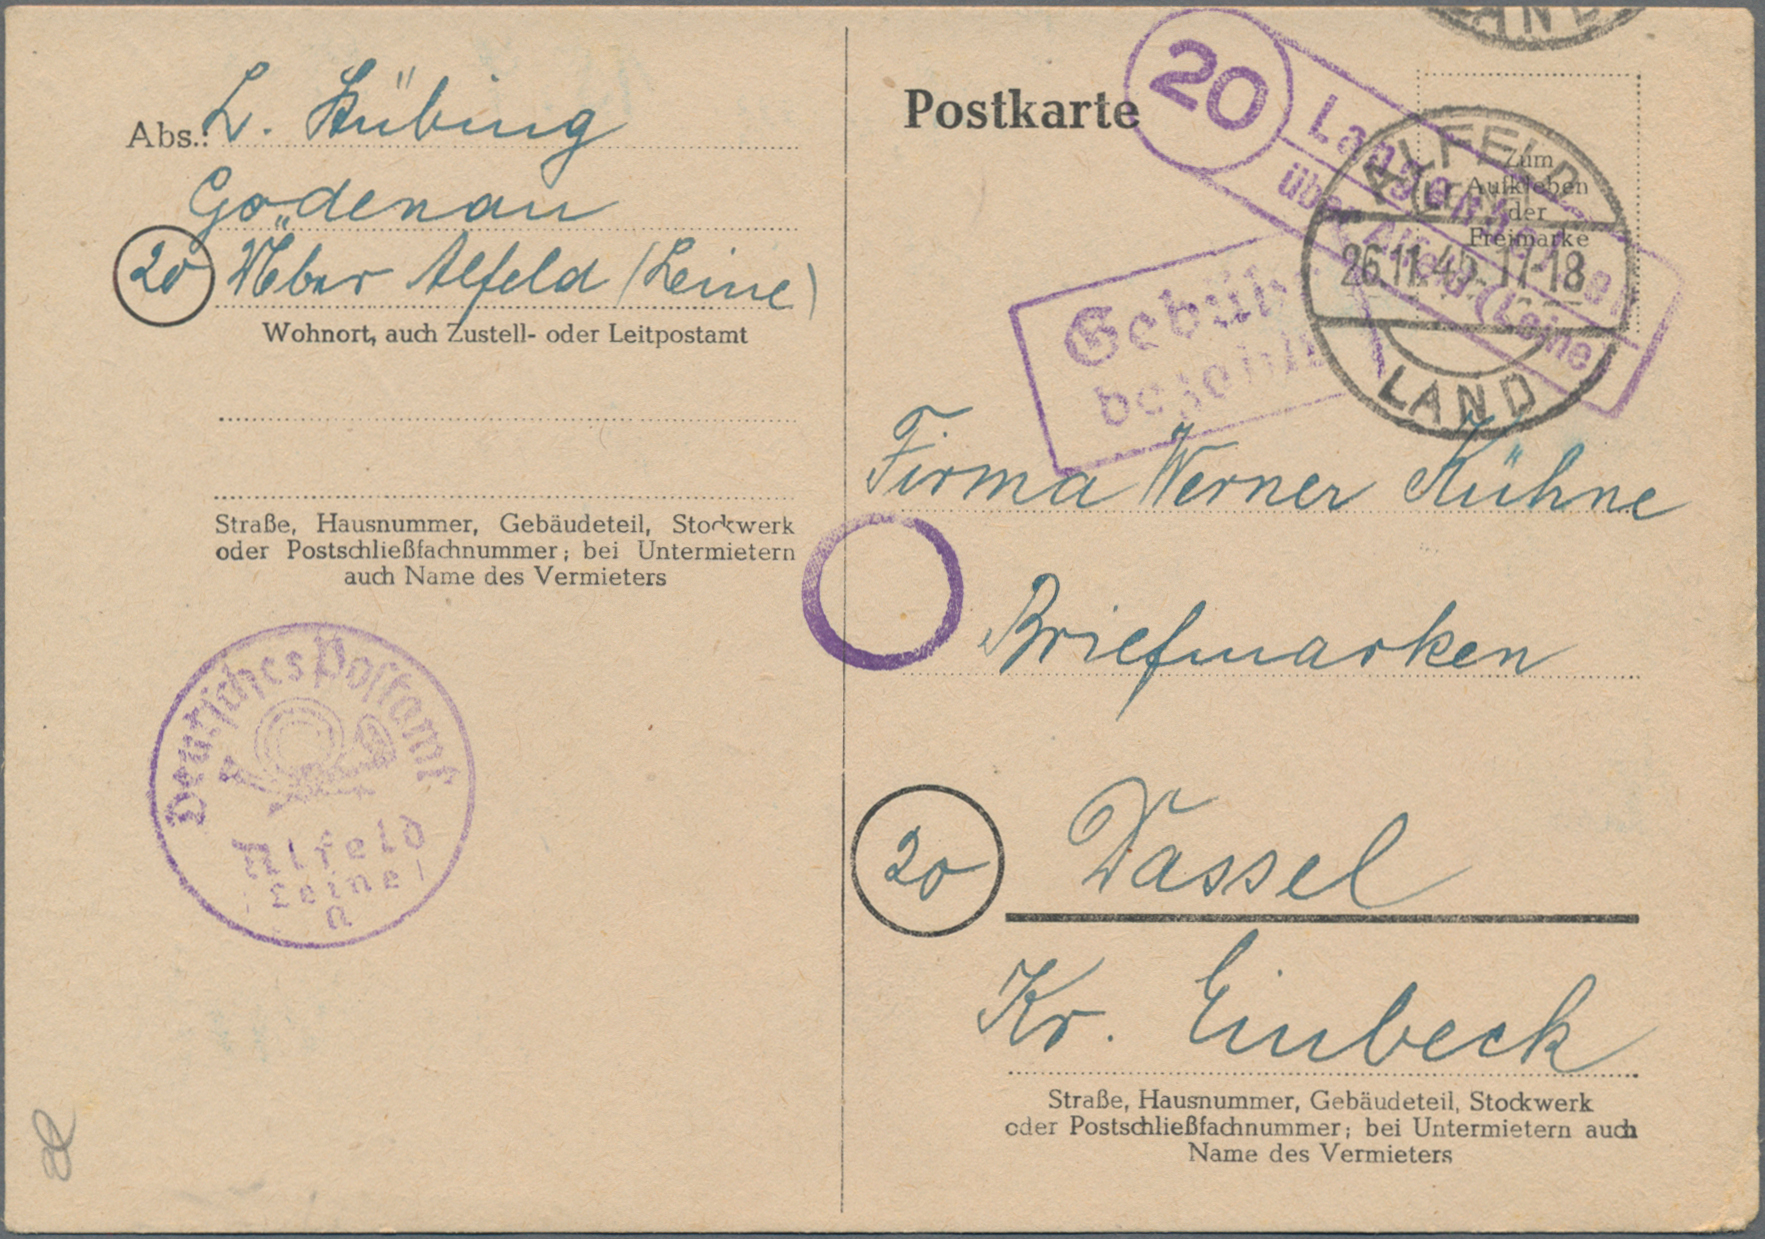 Abs.: L. Hübing
Godenau
20 Über Alfeld (Leine)
Wohnort, auch Zustell- oder Leitpostamt
Straße, Hausnummer, Gebäudeteil, Stockwerk
oder Postschließfachnummer; bei Untermietern
auch Name des Vermieters
Deutsches Postamt
Alfeld
(Leine)
a
LAND
Postkarte
20
über Alfeld (Leine)
Zum
Aufkleben
der
Freimarke
ALFELD
(LEINE)
26.11.45.-17-18
LAND
Gebühr
bezahlt
Firma Werner Kühne
Briefmarken
20 Dassel
Kr. Einbeck
Straße, Hausnummer, Gebäudeteil, Stockwerk
oder Postschließfachnummer; bei Untermietern auch
Name des Vermieters